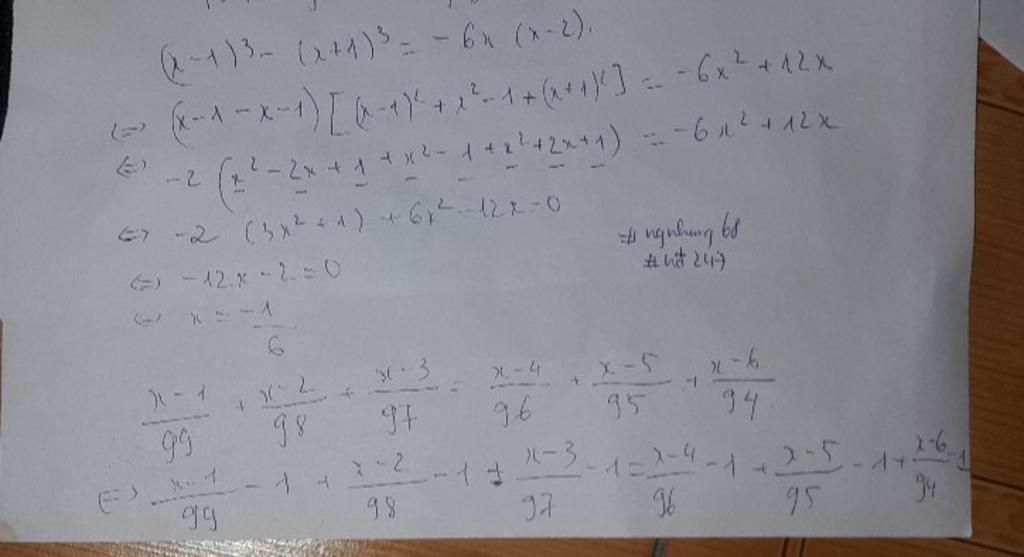 (x-1)³ - (x+1)³ = -6x (x-2).
<=> (x-1-x-1) [(x-1)² + x²-1+(x+1)²] = -6x² + 12x
<=> -2 (x² - 2x + 1 + x² - 1 + x² + 2x + 1) = -6x² + 12x
<=> -2 (3x² + 1) + 6x² - 12x = 0
# ngnhung 68
<=> -12.x - 2 = 0
# hđ 247
<=> x = -1/6
(x-1)/99 + (x-2)/98 + (x-3)/97 = (x-4)/96 + (x-5)/95 + (x-6)/94
<=> (x-1)/99 - 1 + (x-2)/98 - 1 + (x-3)/97 - 1 = (x-4)/96 - 1 + (x-5)/95 - 1 + (x-6)/94 - 1